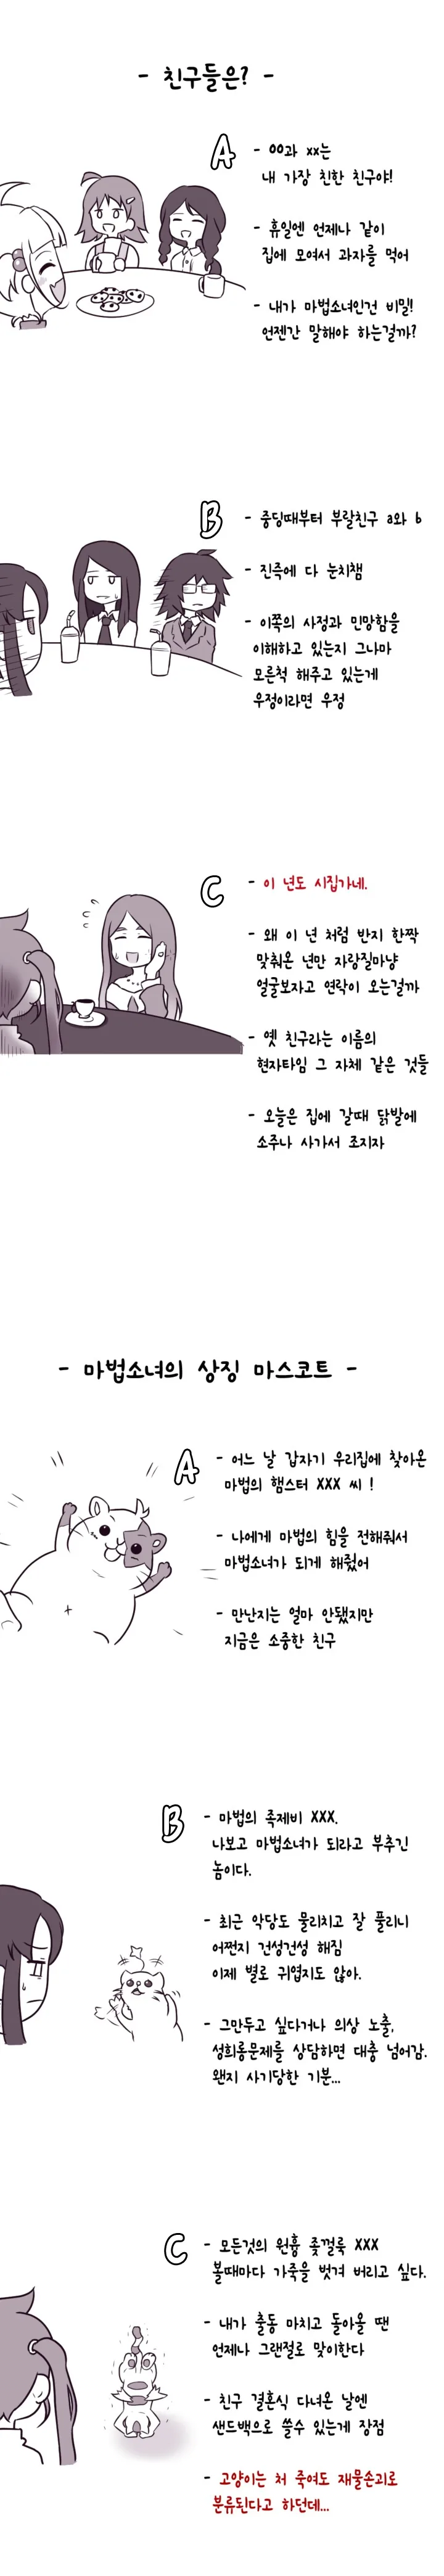 - 친구들은? -
A
- 00과 xx는
내 가장 친한 친구야!
- 휴일엔 언제나 같이
집에 모여서 과자를 먹어
- 내가 마법소녀인건 비밀!
언젠간 말해야 하는걸까?
B
- 중딩때부터 부랄친구 a와 b
- 진즉에 다 눈치챔
- 이쪽의 사정과 민망함을
이해하고 있는지 그나마
모른척 해주고 있는게
우정이라면 우정
C
- 이 년도 시집가네.
- 왜 이 년 처럼 반지 한짝
맞춰온 년만 자랑질마냥
얼굴보자고 연락이 오는걸까
- 옛 친구라는 이름의
현자타임 그 자체 같은 것들
- 오늘은 집에 갈때 닭발에
소주나 사가서 조지자
- 마법소녀의 상징 마스코트 -
A
- 어느 날 갑자기 우리집에 찾아온
마법의 햄스터 XXX 씨 !
- 나에게 마법의 힘을 전해줘서
마법소녀가 되게 해줬어
- 만난지는 얼마 안됐지만
지금은 소중한 친구
B
- 마법의 족제비 XXX.
나보고 마법소녀가 되라고 부추긴
놈이다.
- 최근 악당도 물리치고 잘 풀리니
어쩐지 건성건성 해짐
이제 별로 귀엽지도 않아.
- 그만두고 싶다거나 의상 노출,
성희롱문제를 상담하면 대충 넘어감.
왠지 사기당한 기분...
C
- 모든것의 원흉 좆껄룩 XXX
볼때마다 가죽을 벗겨 버리고 싶다.
- 내가 출동 마치고 돌아올 땐
언제나 그랜절로 맞이한다
- 친구 결혼식 다녀온 날엔
샌드백으로 쓸수 있는게 장점
- 고양이는 쳐 죽여도 재물손괴로
분류된다고 하던데...